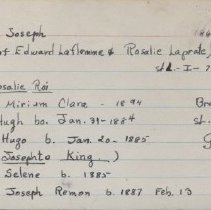 Joseph 186
of Edward Laflemme & Rosalie Laprate,
st.-I-7
Rosalie Roi
Miriem Clara - 1894 Br
Hugh bo. Jan. 31-1884 st.
Hugo b. Jan. 20- 1885
Josephte King )
Selene b. 1885
Joseph Remon b. 1887 Feb. 13